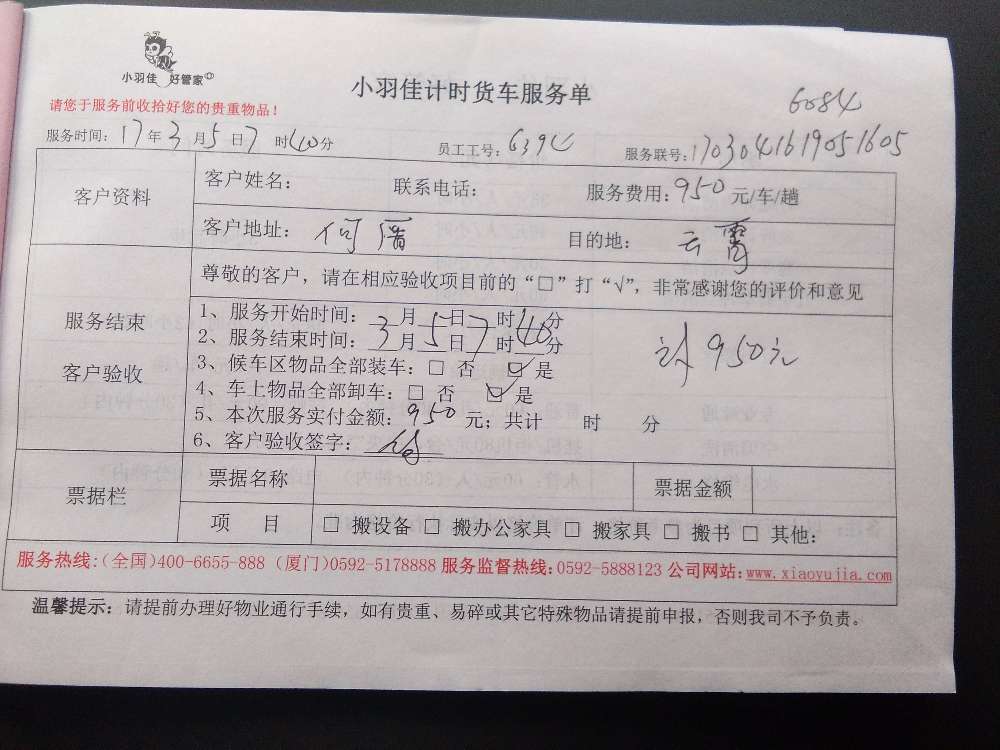 小羽佳 好管家
小羽佳计时货车服务单
6084
请您于服务前收拾好您的贵重物品！
服务时间：17年3月5日7时40分 员工工号：6394 服务联号：1703041619051605
客户资料
客户姓名： 联系电话： 服务费用：950元/车/趟
客户地址：何厝 目的地：云霄
服务结束
客户验收
尊敬的客户，请在相应验收项目前的“□”打“√”，非常感谢您的评价和意见
1、服务开始时间：3月5日7时40分
2、服务结束时间：3月5日7时40分
3、候车区物品全部装车：□ 否 ☑ 是
4、车上物品全部卸车：□ 否 ☑ 是
5、本次服务实付金额：950元；共计 时 分
6、客户验收签字：
计950元
票据栏
票据名称 票据金额
项 目 □ 搬设备 □ 搬办公家具 □ 搬家具 □ 搬书 □ 其他：
服务热线：(全国)400-6655-888 (厦门)0592-5178888 服务监督热线：0592-5888123 公司网站：www.xiaoyujia.com
温馨提示：请提前办理好物业通行手续，如有贵重、易碎或其它特殊物品请提前申报，否则我司不予负责。